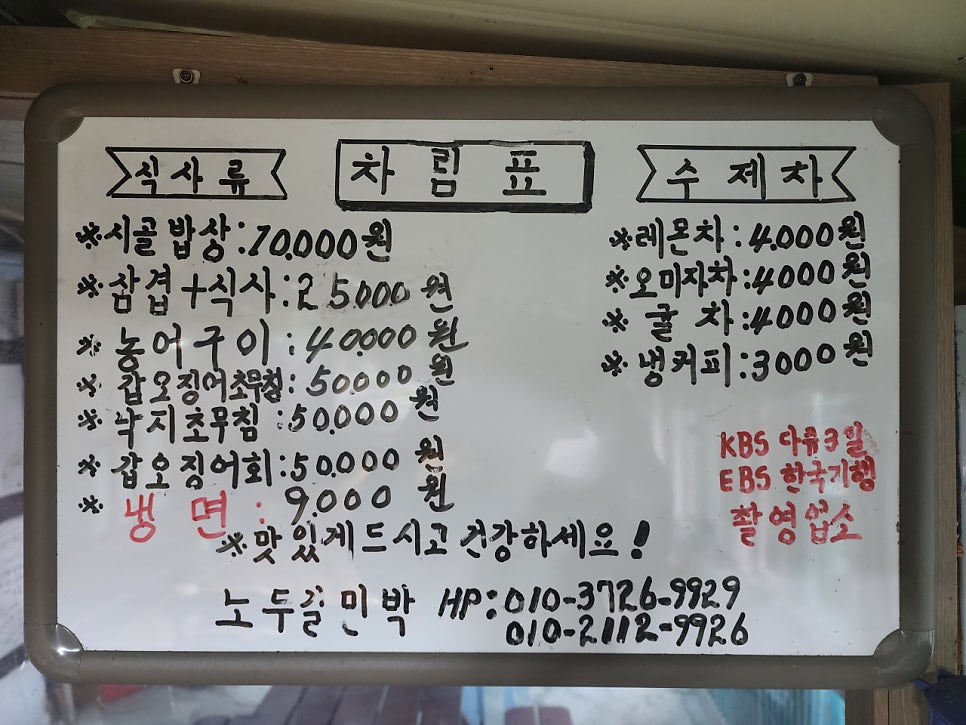 차림표
식사류
※시골밥상:10,000원
※삼겹+식사:25,000원
※농어구이:40,000원
※갑오징어초무침:50,000원
※낙지초무침:50,000원
※갑오징어회:50,000원
※냉면:9,000원
수제차
※레몬차:4,000원
※오미자차:4,000원
※귤차:4,000원
※냉커피:3000원
KBS 다큐3일
EBS 한국기행
촬영업소
※맛있게드시고 건강하세요!
노두길민박 HP:010-3726-9929
010-2112-9926